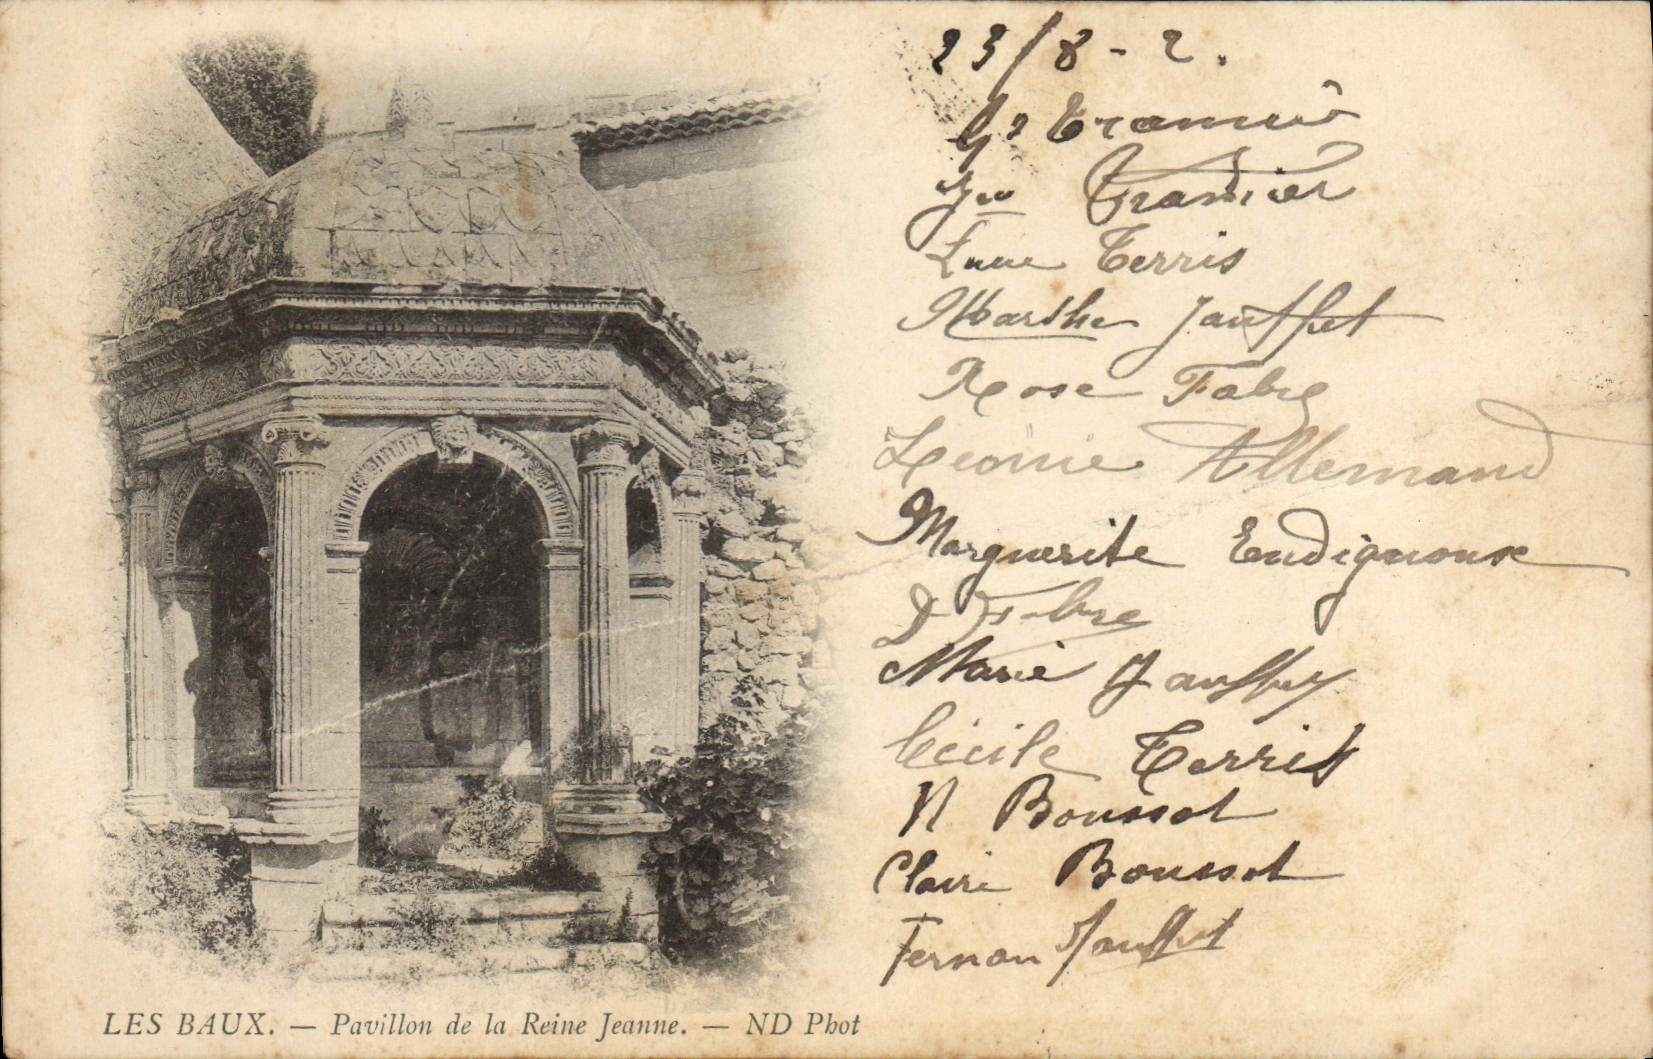 23/8 - 2.
Terris
Marthe Jauffret
Rose Fabre
Léonie Allemand
Marguerite Endignoux
D Fabre
Marie Jauffret
Cécile Terris
N Bousset
Claire Bousset
Fernan Jauffret
LES BAUX. — Pavillon de la Reine Jeanne. — ND Phot